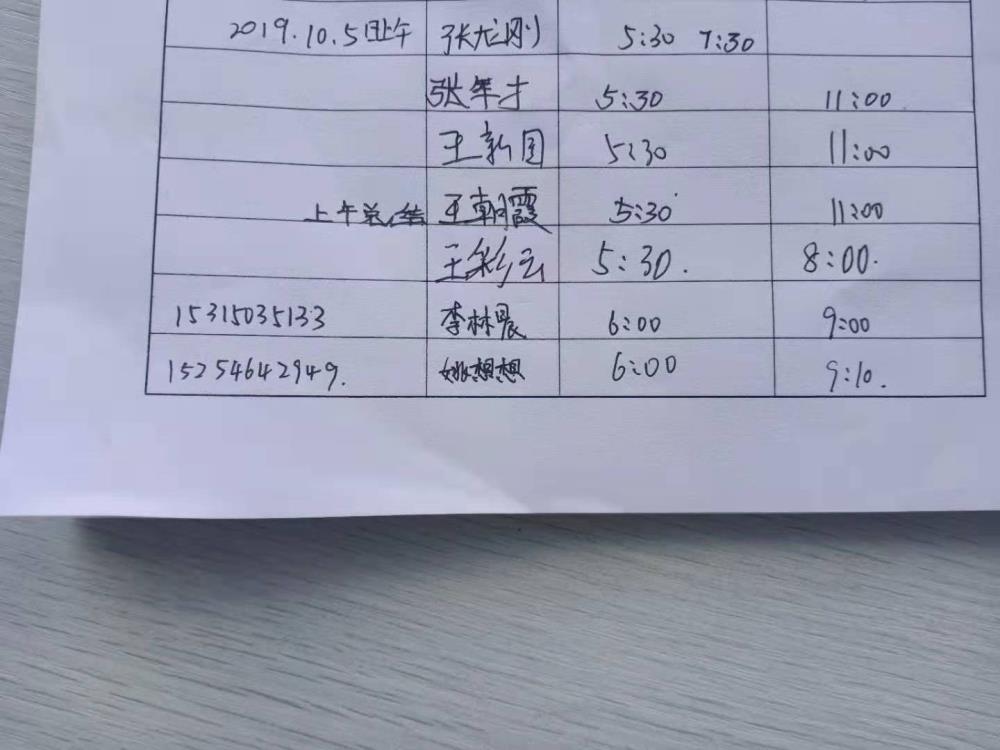 2019.10.5日上午 张龙刚 5:30 7:30
张年才 5:30 11:00
王新国 5:30 11:00
上午总结 王朝霞 5:30 11:00
王彩云 5:30. 8:00.
15315035133 李林晨 6:00 9:00
15254642949. 姚想想 6:00 9:10.